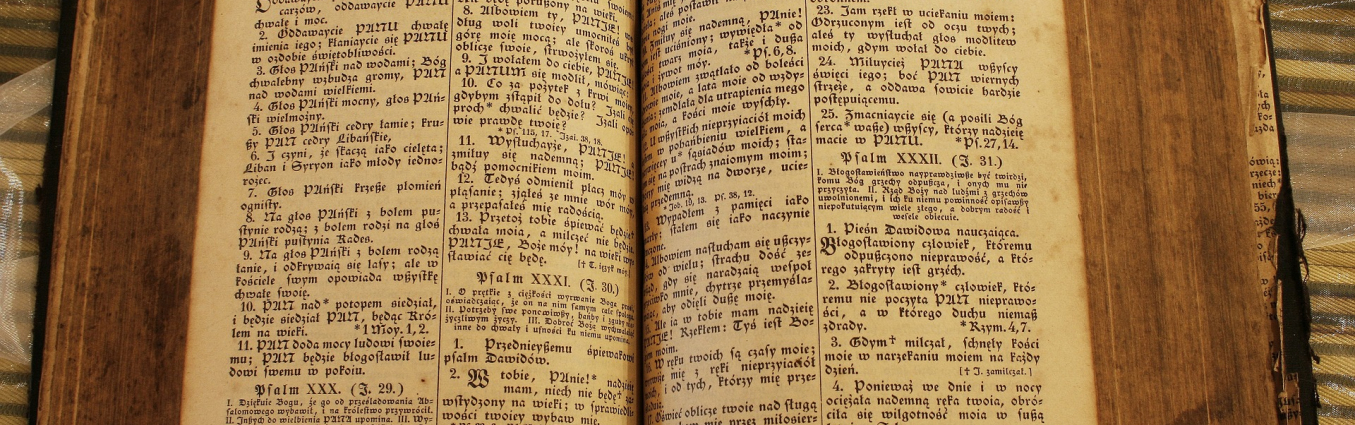 carzów, oddawaycie PANU
chwałę i moc.
2. Oddawaycie PANU chwałę
imienia iego; kłaniaycie się PANU
w ozdobie świętobliwości.
3. Głos PAński nad wodami; Bóg
chwalebny wzbudza gromy, PAN
nad wodami wielkiemi.
4. Głos PAński mocny, głos PAń-
ski wielmożny.
5. Głos PAński cedry łamie; kru-
szy PAN cedry Libańskie,
6. I czyni, że skaczą iako cielęta;
Liban i Syryon iako młody iedno-
rożec.
7. Głos PAński krzesze płomień
ognisty.
8. Na głos PAński z bolem pu-
stynie rodzą; z bolem rodzi na głos
PAński pustynia Kades.
9. Na głos PAński z bolem rodzą
łanie, i odkrywaią się lasy; ale w
kościele swym opowiada wszystkę
chwałę swoię.
10. PAN nad* potopem siedział,
i będzie siedział PAN, będąc Kró-
lem na wieki. *1 Moy. 1, 2.
11. PAN doda mocy ludowi swoie-
mu; PAN będzie błogosławił lu-
dowi swemu w pokoiu.
Psalm XXX. (J. 29.)
I. Dziękuie Bogu, że go od prześladowania Ab-
salomowego wybawił, i na królestwo przywrócił.
II. Inszych do wielbienia PANA upomina. III. Wy-
8. Albowiem ty, PANIE!
dług woli twoiey umocniłeś
górę moię mocą; ale skoroś
oblicze swoie, strwożyłem się.
9. I wołałem do ciebie, PANIE!
a PANUM się modlił, mówiąc:
10. Co za pożytek z krwi moiey,
gdybym zstąpił do dołu? Izali
proch* chwalić będzie? Izali
wie prawdę twoię?
*Ps. 115, 17. Izai. 38, 18.
11. Wysłuchayże, PANIE!
zmiłuy się nademną; PANIE!
bądź pomocnikiem moim.
12. Tedyś odmienił płacz mój w
pląsanie; zjąłeś ze mnie wór mój,
a przepasałeś mię radością.
13. Przetoż tobie śpiewać będzie†
chwała moia, a milczeć nie będzie.
PANIE, Boże móy! na wieki
sławiać cię będę.
Psalm XXXI. (J. 30.)
1. Przednieyszemu śpiewakowi
psalm Dawidów.
2. W tobie, PAnie!* nadzieię
mam, niech nie będę†
wstydzony na wieki; w sprawiedli-
wości twoiey wybaw mię.
nogi moie.
Zmiłuy się nademną, PAnie!
uciśniony; wywiędła* od
twarz moia, także i dusza
żywot móy. *Ps. 6, 8.
Albowiem zwątlało od boleści
moie, a lata moie od wzdy-
zemdlała dla utrapienia mego
moia, a kości moie wyschły.
U wszystkich nieprzyiaciół moich
w pohańbieniu wielkiem, a
u* sąsiadów moich; sta-
na postrach znaiomym moim;
mię widzą na dworze, ucie-
przedemną.
*Job. 19, 13. Ps. 38, 12.
Wypadłem z pamięci iako
stałem się iako naczynie
Albowiem nasłucham się uszczy-
od wielu; strachu dość ze-
gdy się naradzaią wespół
przeciwko mnie, chytrze przemyśla-
aby odięli duszę moię.
Ale ia w tobie mam nadzieię
PANIE! Rzekłem: Tyś iest Bo-
moim.
W ręku twoich są czasy moie;
mię z ręki nieprzyiaciół
i od tych, którzy mię prze-
Oświeć oblicze twoie nad sługą
mię przez miłosier-
23. Jam rzekł w uciekaniu moiem:
Odrzuconym iest od oczu twych;
aleś ty wysłuchał głos modlitew
moich, gdym wołał do ciebie.
24. Miłuycież PANA wszyscy
święci iego; boć PAN wiernych
strzeże, a oddawa sowicie hardzie
postępuiącemu.
25. Zmacniaycie się (a posili Bóg
serca* wasze) wszyscy, którzy nadzieię
macie w PANU. *Ps. 27, 14.
Psalm XXXII. (J. 31.)
I. Błogosławieństwo nayprawdziwsze być twierdzi,
komu Bóg grzechy odpuszcza, i onych mu nie
przyczyta. II. Rząd Boży nad ludźmi z grzechów
uwolnionemi, i ich ku niemu powinność opisawszy
niepokutuiącym wiele złego, a dobrym radość i
wesele obiecuie.
1. Pieśń Dawidowa nauczaiąca.
Błogosławiony człowiek, któremu
odpuszczono nieprawość, a któ-
rego zakryty iest grzéch.
2. Błogosławiony* człowiek, któ-
remu nie poczyta PAN nieprawo-
ści, a w którego duchu niemasz
zdrady. *Rzym. 4, 7.
3. Gdym† milczał, schnęły kości
moie w narzekaniu moiem na każdy
dzień. [† J. zamilczał.]
4. Ponieważ we dnie i w nocy
ociężała nademną ręka twoia, obró-
ciła się wilgotność moia w suszą